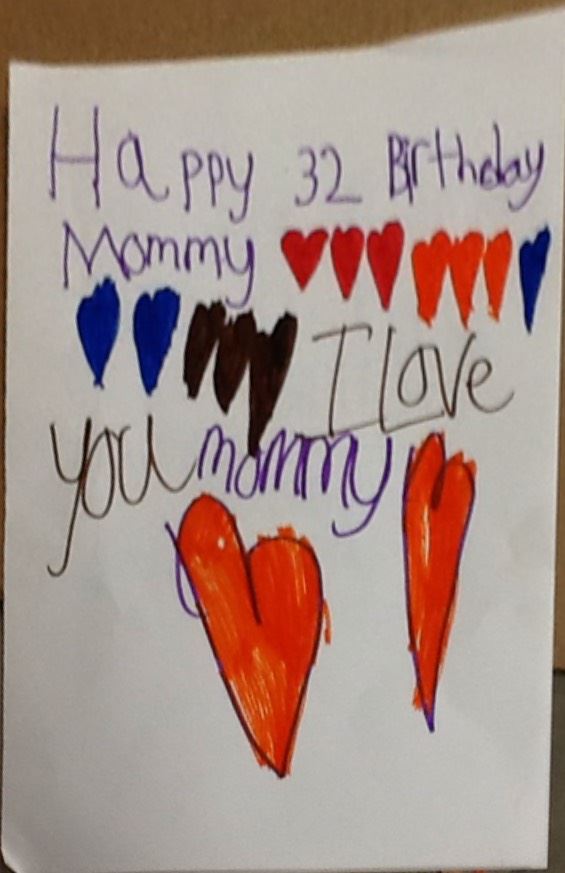 Happy 32 Birthday
Mommy
I love
you mommy